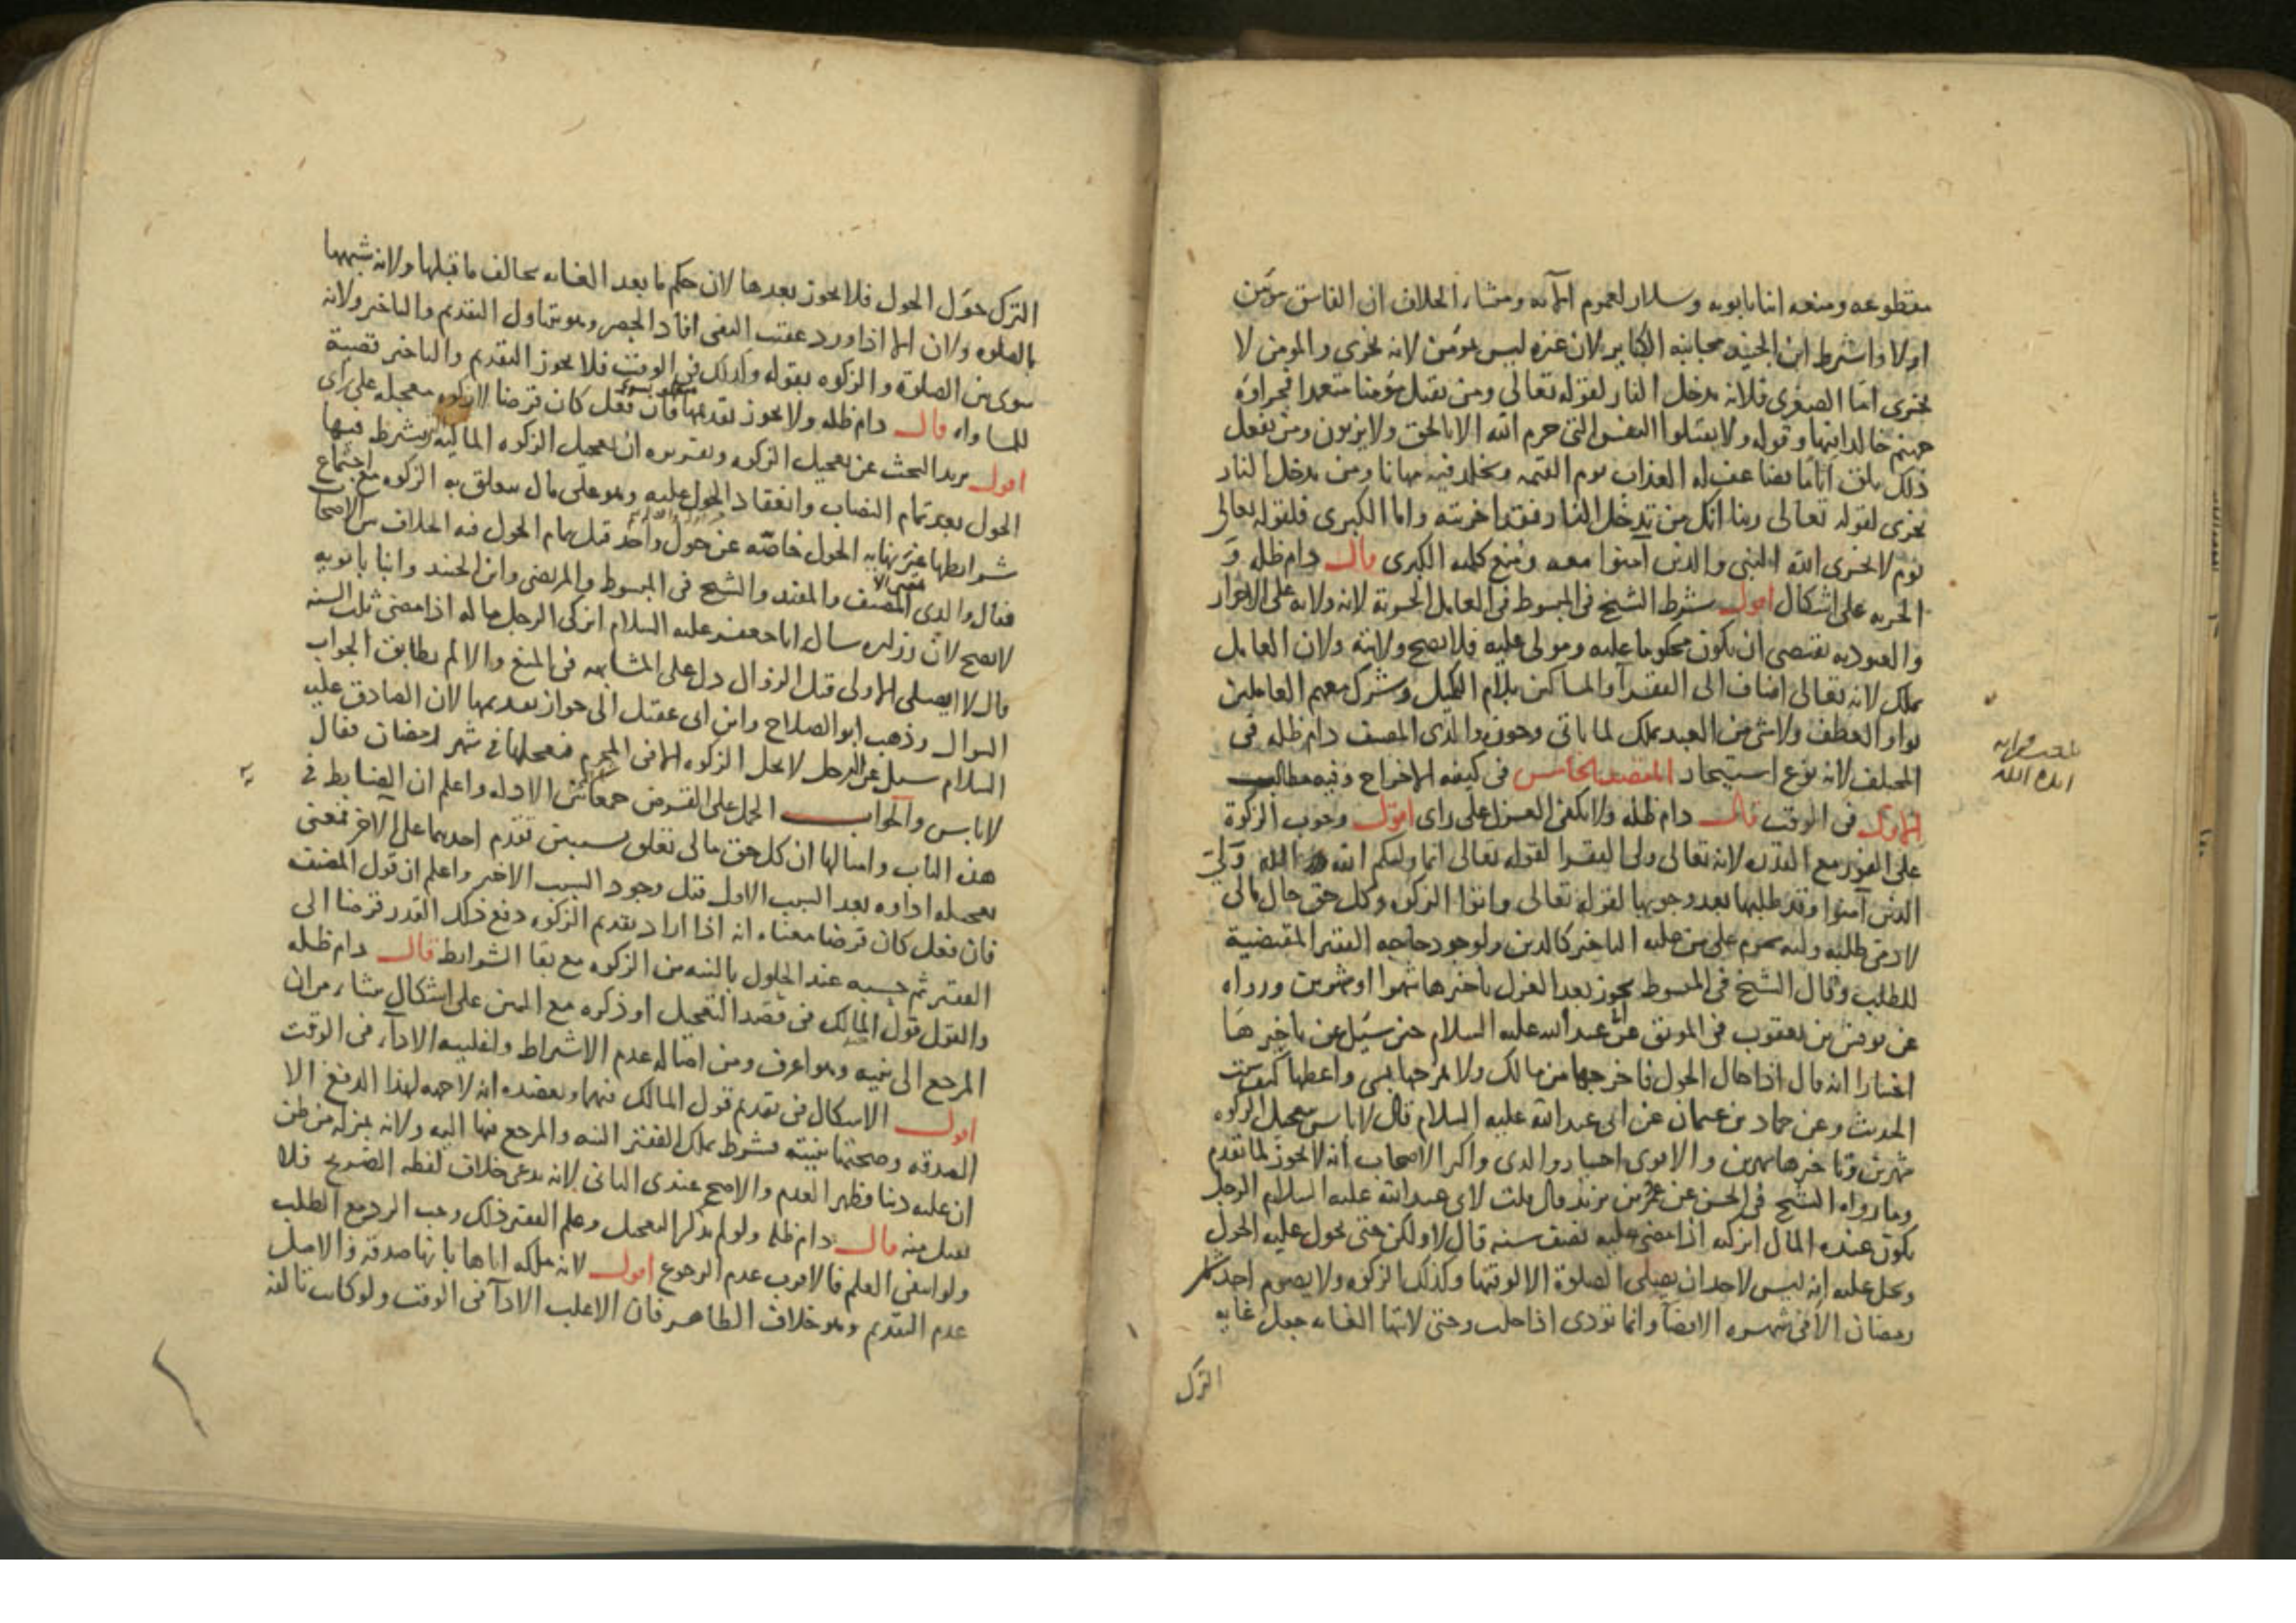 مقطوعه ومنعه ابنا بابويه وسلار لعموم الآية ومنشاء الخلاف ان الفاسق مؤمن
اولا واشترط ابن الجنيد مجانبة الكباير لان غيره ليس بمؤمن لانه يخزى والمؤمن لا
يخزى اما الصغرى فلانه يدخل النار لقوله تعالى ومن يقتل مؤمنا متعمدا فجزاؤه
جهنم خالدا فيها وقوله ولا يقتلوا النفس التى حرم الله الا بالحق ولا يزنون ومن يفعل
ذلك يلق اثاما يضاعف له العذاب يوم القيمه ويخلد فيه مهانا ومن يدخل النار
يخزى لقوله تعالى ربنا انك من تدخل النار فقد اخزيته واما الكبرى فلقوله تعالى
يوم لا يخزى الله النبى والذين آمنوا معه ومنع كليه الكبرى قال دام ظله و
الحريه على اشكال اقول شرط الشيخ فى المبسوط فى العامل الحرية لانه ولاية على الاحرار
والعبوديه تقتضى ان يكون محكوما عليه ومولى عليه فلا يصح ولايته ولان العامل
يملك لانه تعالى اضاف الى الفقرآ والمساكين بلام التمليك وشرك معهم العاملين
بواو العطف ولا شى من العبد يملك لما ياتى وجوزه والدى المصنف دام ظله فى
المختلف لانه نوع استيجار المقصد الخامس فى كيفيه الاخراج وفيه مطالب
الاول فى الوقت قال دام ظله ولا يكفى العزل على راى اقول وجوب الزكوة
على الفور مع القدره لانه تعالى ولى الفقرا لقوله تعالى انما وليكم الله الله ولى
الذين آمنوا وقد طلبها بعد وجوبها لقوله تعالى واتوا الزكوه وكل حق حال مالى
لادمى طلبه وليه يحرم على من عليه التاخير كالدين ولوجود حاجه الفقير المقتضية
للطلب وقال الشيخ فى المبسوط يجوز بعد العزل تاخيرها شهرا او شهرين ورواه
عن يونس بن يعقوب فى الموثق عن ابى عبد الله عليه السلام حين سئل عن تاخيرها
اختيارا انه قال اذا حال الحول فاخرجها من مالك ولا تخرجها بشى واعطها كيف شئت
الحديث وعن حماد بن عثمان عن ابى عبد الله عليه السلام قال لا باس بتعجيل الزكوه
شهرين وتاخيرها شهرين والاقوى اختيار والدى واكثر الاصحاب انه لا يجوز لما تقدم
وما رواه الشيخ فى الحسن عن عمر بن يزيد قال قلت لابى عبد الله عليه السلام الرجل
يكون عنده المال ايزكيه اذا مضى عليه نصف سنه قال لا ولكن حتى يحول عليه الحول
ويحل عليه انه ليس لاحد ان يصلى الصلوة الا لوقتها وكذلك الزكوه ولا يصوم احد شهر
رمضان الا فى شهره الا قضآ وانما تؤدى اذا حلت وحتى لانتها الغايه جعل غايه
الترك
الترك حؤل الحول فلا يجوز بعدها لان حكم ما بعد الغايه يخالف ما قبلها ولانه شبهها
بالصلوه ولان الا اذا ورد عقيب النفى افاد الحصر وهو يتناول التقديم والتاخير ولانه
سوى بين الصلوة والزكوه بقوله وكذلك فى الوقت فلا يجوز التقديم والتاخير تقضية
للمساواه قال دام ظله ولا يجوز تقديمها فان فعل كان قرضا لا زكوه معجله على راى
اقول يريد البحث عن تعجيل الزكوه وتقريره ان تعجيل الزكوه الماليه يشترط فيها
الحول بعد تمام النصاب وانعقاد الحول عليه وهو على مال يتعلق به الزكوه مع اجتماع
شرايطها غير نهايه الحول خاصة عن حول واحد قبل تمام الحول فيه الخلاف بين الاصحاب
فقال والدى المصنف والمفيد والشيخ فى المبسوط والمرتضى وابن الجنيد وابنا بابويه
لا يصح لان زراره سال ابا جعفر عليه السلام ايزكى الرجل ماله اذا مضى ثلث السنه
قال لا ايصلى الاولى قبل الزوال دل على المشابهه فى المنع والا لم يطابق الجواب
السوال وذهب ابو الصلاح وابن ابى عقيل الى جواز تقديمها لان الصادق عليه
السلام سيل عن الرجل لا يحل الزكوه الا فى المحرم فيعجلها فى شهر رمضان فقال
لا باس والجواب الحمل على القرض جمعا بين الادله واعلم ان الضابط فى
هذا الباب وامثالها ان كل حق مالى تعلق بسببين تقدم احدهما على الاخر فمعنى
تعجيله اداوه بعد السبب الاول قبل وجود السبب الاخير واعلم ان قول المصنف
فان فعل كان قرضا معناه انه اذا اراد تقديم الزكوه دفع ذلك القدر قرضا الى
الفقير ثم حسبه عند الحلول بالنيه من الزكوه مع بقا الشرايط قال دام ظله
والقول قول المالك فى قصد التعجيل او ذكره مع اليمين على اشكال منشاه من ان
المرجع الى نيته وهو اعرف ومن اصاله عدم الاشتراط واغلبيه الادآء فى الوقت
اقول الاشكال فى تقديم قول المالك فيهما ويعضده انه لا جهه لهذا الدفع الا
الصدقه وصحتها بنيته فشرط تملك الفقير النيه والمرجع فيها اليه ولانه بمنزله من ظن
ان عليه دينا فظهر العدم والاصح عندى الثانى لانه يدعى خلاف لفظه الصريح فلا
يقبل منه قال دام ظله ولو لم يذكر التعجيل وعلم الفقير ذلك وجب الرد مع الطلب
ولو انتفى العلم فالاقرب عدم الرجوع اقول لانه ملكه اياها بانها صدقه والاصل
عدم التقديم وهو خلاف الظاهر فان الاغلب الادآ فى الوقت ولو كانت تالفه